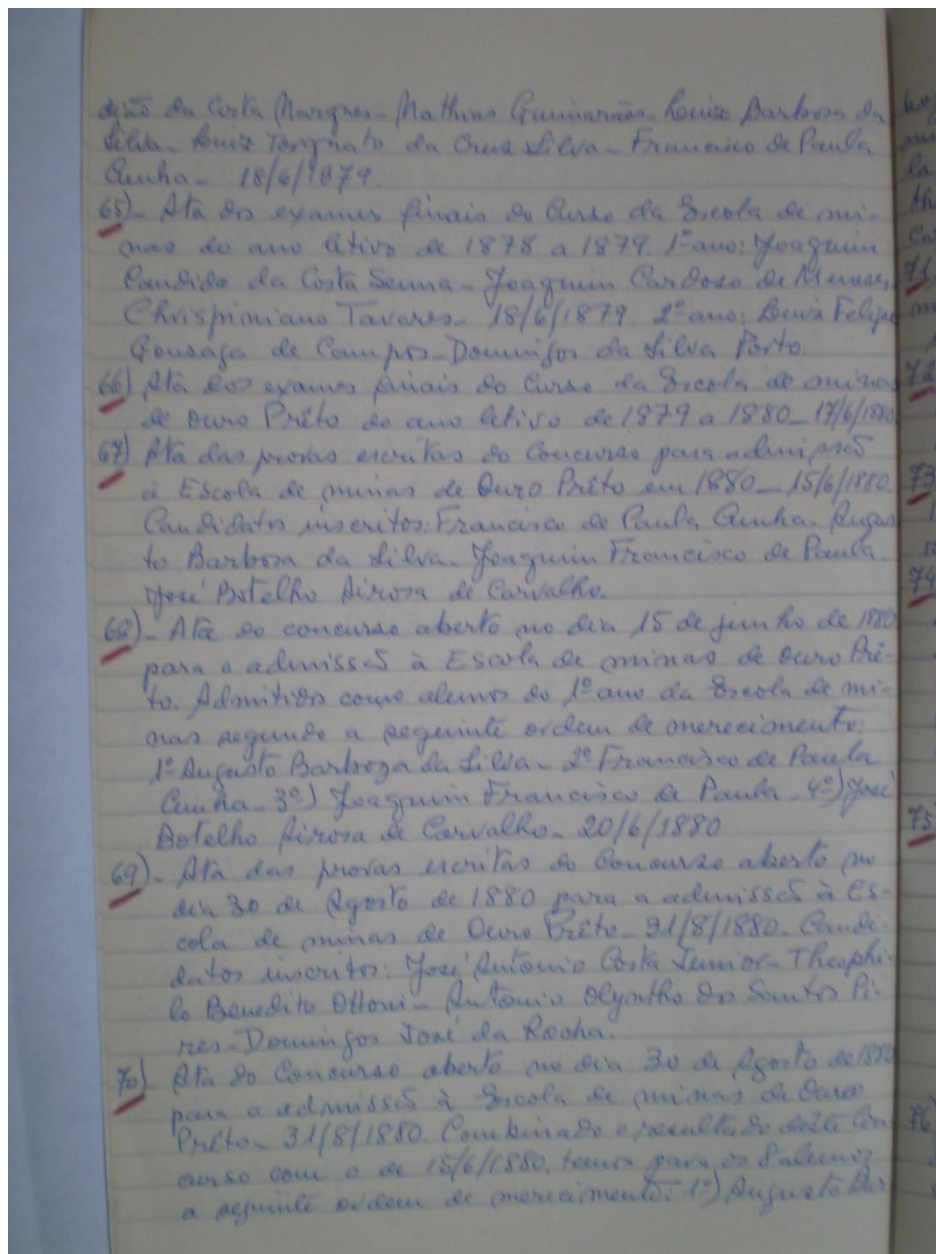 da Costa Marques - Mathias Guimarães - Luiz Barbosa da
Silva - Luiz Torquato da Cruz Silva - Francisco de Paula
Cunha - 18/6/1879.
65) - Ata dos exames finais do Curso da Escola de mi-
nas do ano letivo de 1878 a 1879. 1º ano: Joaquim
Candido da Costa Senna - Joaquim Cardoso de Menezes
Chrispiniano Tavares - 18/6/1879. 2º ano: Luiz Felipe
Gonzaga de Campos - Domingos da Silva Porto.
66) Ata dos exames finais do Curso da Escola de minas
de Ouro Prêto do ano letivo de 1879 a 1880 - 17/6/1880
67) Ata das provas escritas do Concurso para admissão
à Escola de minas de Ouro Prêto em 1880 - 15/6/1880
Candidatos inscritos: Francisco de Paula Cunha. Augus
to Barbosa da Silva - Joaquim Francisco de Paula -
José Botelho Airosa de Carvalho.
68) - Ata do concurso aberto no dia 15 de junho de 1880
para a admissão à Escola de minas de Ouro Prê-
to. Admitidos como alunos do 1º ano da Escola de mi-
nas segundo a seguinte ordem de merecimento:
1º Augusto Barboza da Silva - 2º Francisco de Paula
Cunha - 3º) Joaquim Francisco de Paula - 4º) José
Botelho Airosa de Carvalho - 20/6/1880
69) - Ata das provas escritas do Concurso aberto no
dia 30 de Agosto de 1880 para a admissão à Es-
cola de minas de Ouro Prêto - 31/8/1880. Candi-
datos inscritos: José Antonio Costa Junior - Theophi-
lo Benedito Ottoni - Antonio Olyntho dos Santos Pi-
res - Domingos José da Rocha.
70) Ata do Concurso aberto no dia 30 de Agosto de 1880
para a admissão à Escola de minas de Ouro
Prêto - 31/8/1880. Combinado o resultado deste Con
curso com o de 15/6/1880, temos para os 8 alunos
a seguinte ordem de merecimento: 1º) Augusto Bar
71
72
73
74
75
76)